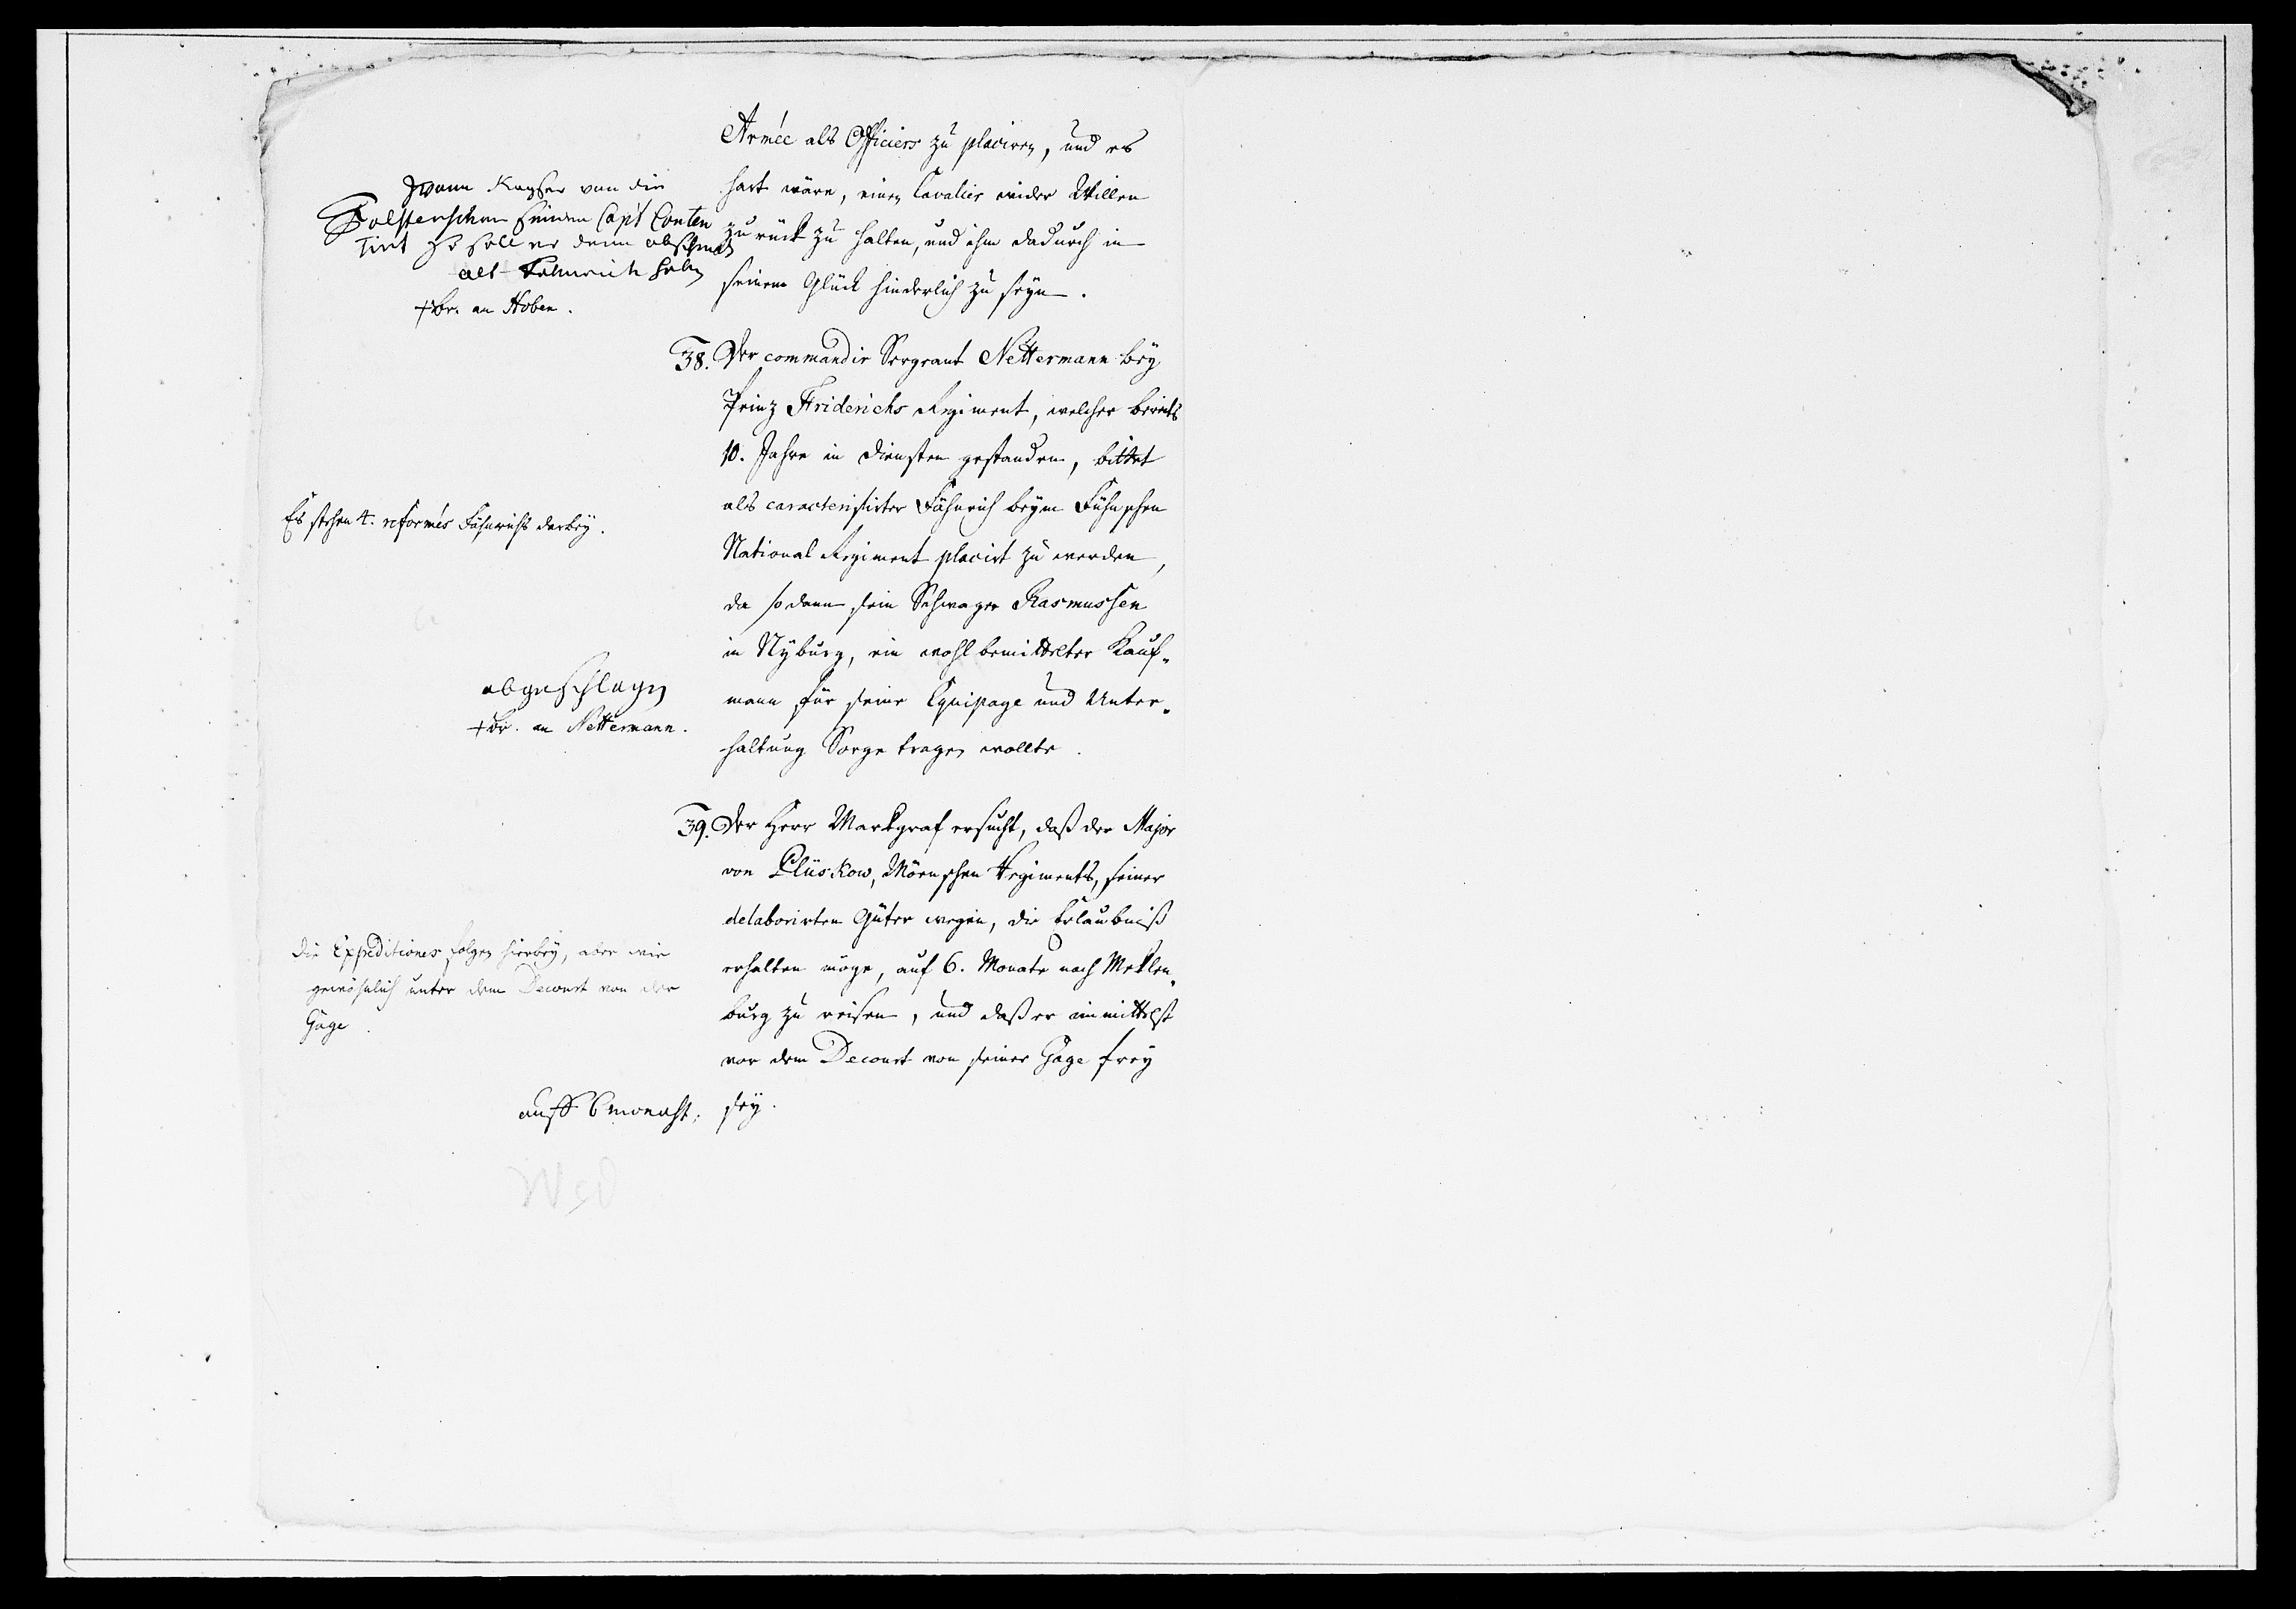 Armée als Officiers zu placiren, und es
hart wäre, einen Cavalier wider Willen
zurück zu halten, und ihm dadurch in
seinem Glück hinderlich zu seyn.
von die
Holsterschen seinen Capt Conten
tirt so soll er den abscheid
als Fehnrich haben
+ Br. an Hoben.
38. Der commandir Sergeant Nettermann bey
Prinz Friderichs Regiment, welcher bereits
10. Jahre in Diensten gestanden, bittet
als caracterisirter Fähnrich beym Fühnschen
National Regiment placirt zu werden,
da sodann sein Schwager Rasmussen
in Nyburg, ein wohl bemittelter Kauf-
mann für seine Equipage und Unter-
haltung Sorge tragen wollte.
Es stehen 4. reformés Fähnrichs darbey.
abgeschlagen
+ Br. an Nettermann.
39. Der Herr Markgraf ersucht, daß der Major
von Plüskow, Mörnschen Regiments, seiner
delaborirten Güter wegen, die Erlaubniß
erhalten möge, auf 6. Monate nach Meklen-
burg zu reisen, und daß er immittelst
vor dem Decourt von seiner Gage frey
sey.
Die Expeditiones folgen hierbey, aber wie
gewöhnlich unter dem Decourt von der
Gage.
auff 6 monaht.